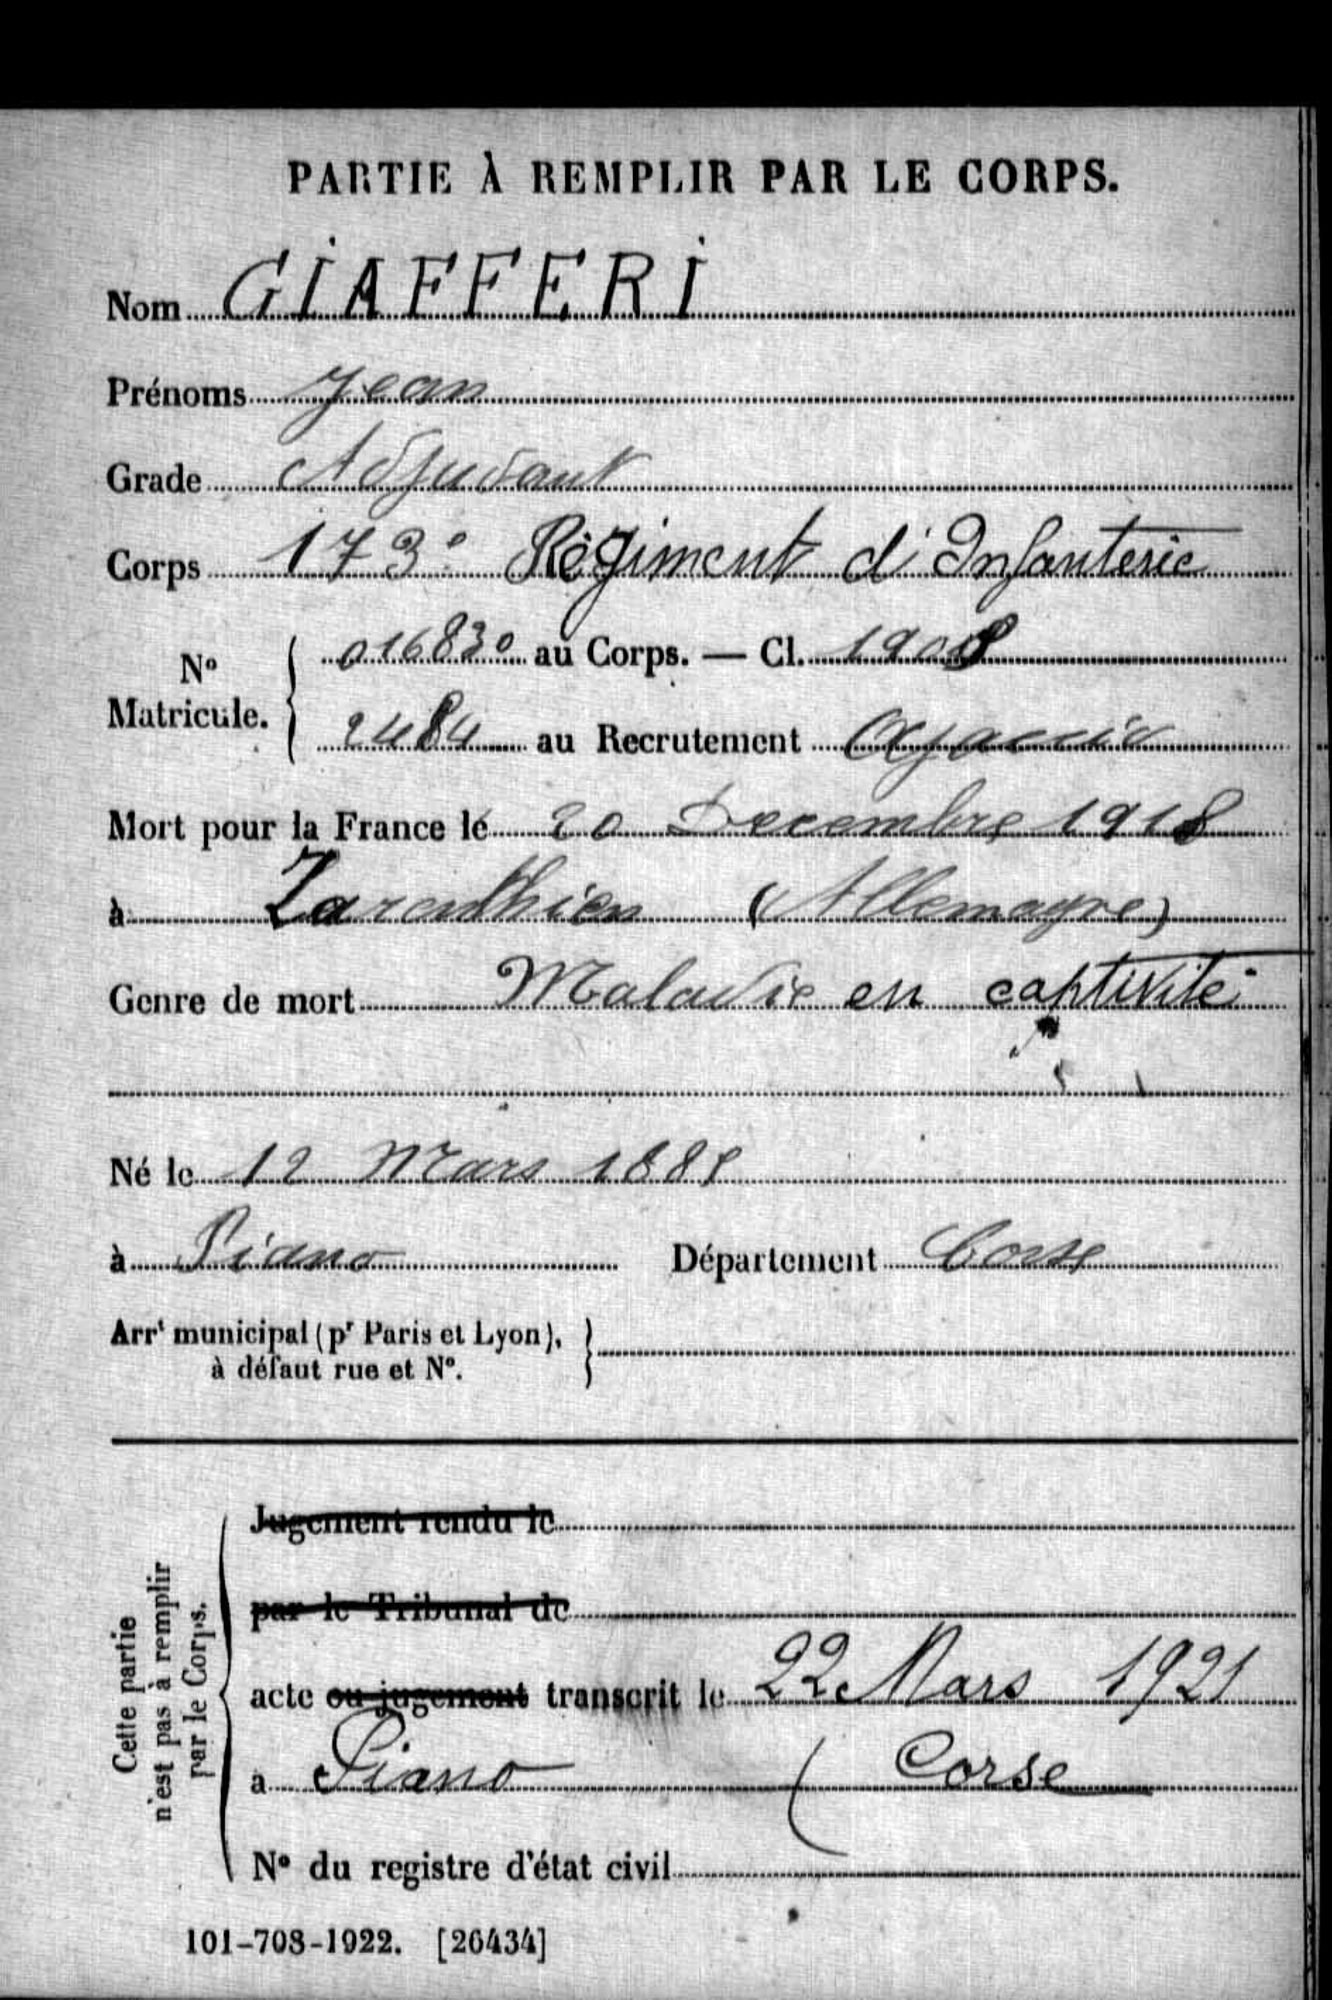 PARTIE À REMPLIR PAR LE CORPS.
Nom GIAFFERI
Prénoms Jean
Grade Adjudant
Corps 173e Régiment d'Infanterie
No Matricule. { 016830 au Corps. — Cl. 1908
2484 au Recrutement Ajaccio
Mort pour la France le 20 Decembre 1918
à Zarenthien (Allemagne)
Genre de mort Maladie en captivité
Né le 12 Mars 1888
à Piano Département Corse
Arrt municipal (pr Paris et Lyon),
à défaut rue et No.
Cette partie
n'est pas à remplir
par le Corps.
Jugement rendu le
par le Tribunal de
acte ou jugement transcrit le 22 Mars 1921
à Piano ( Corse
No du registre d'état civil
101-708-1922. [26434]